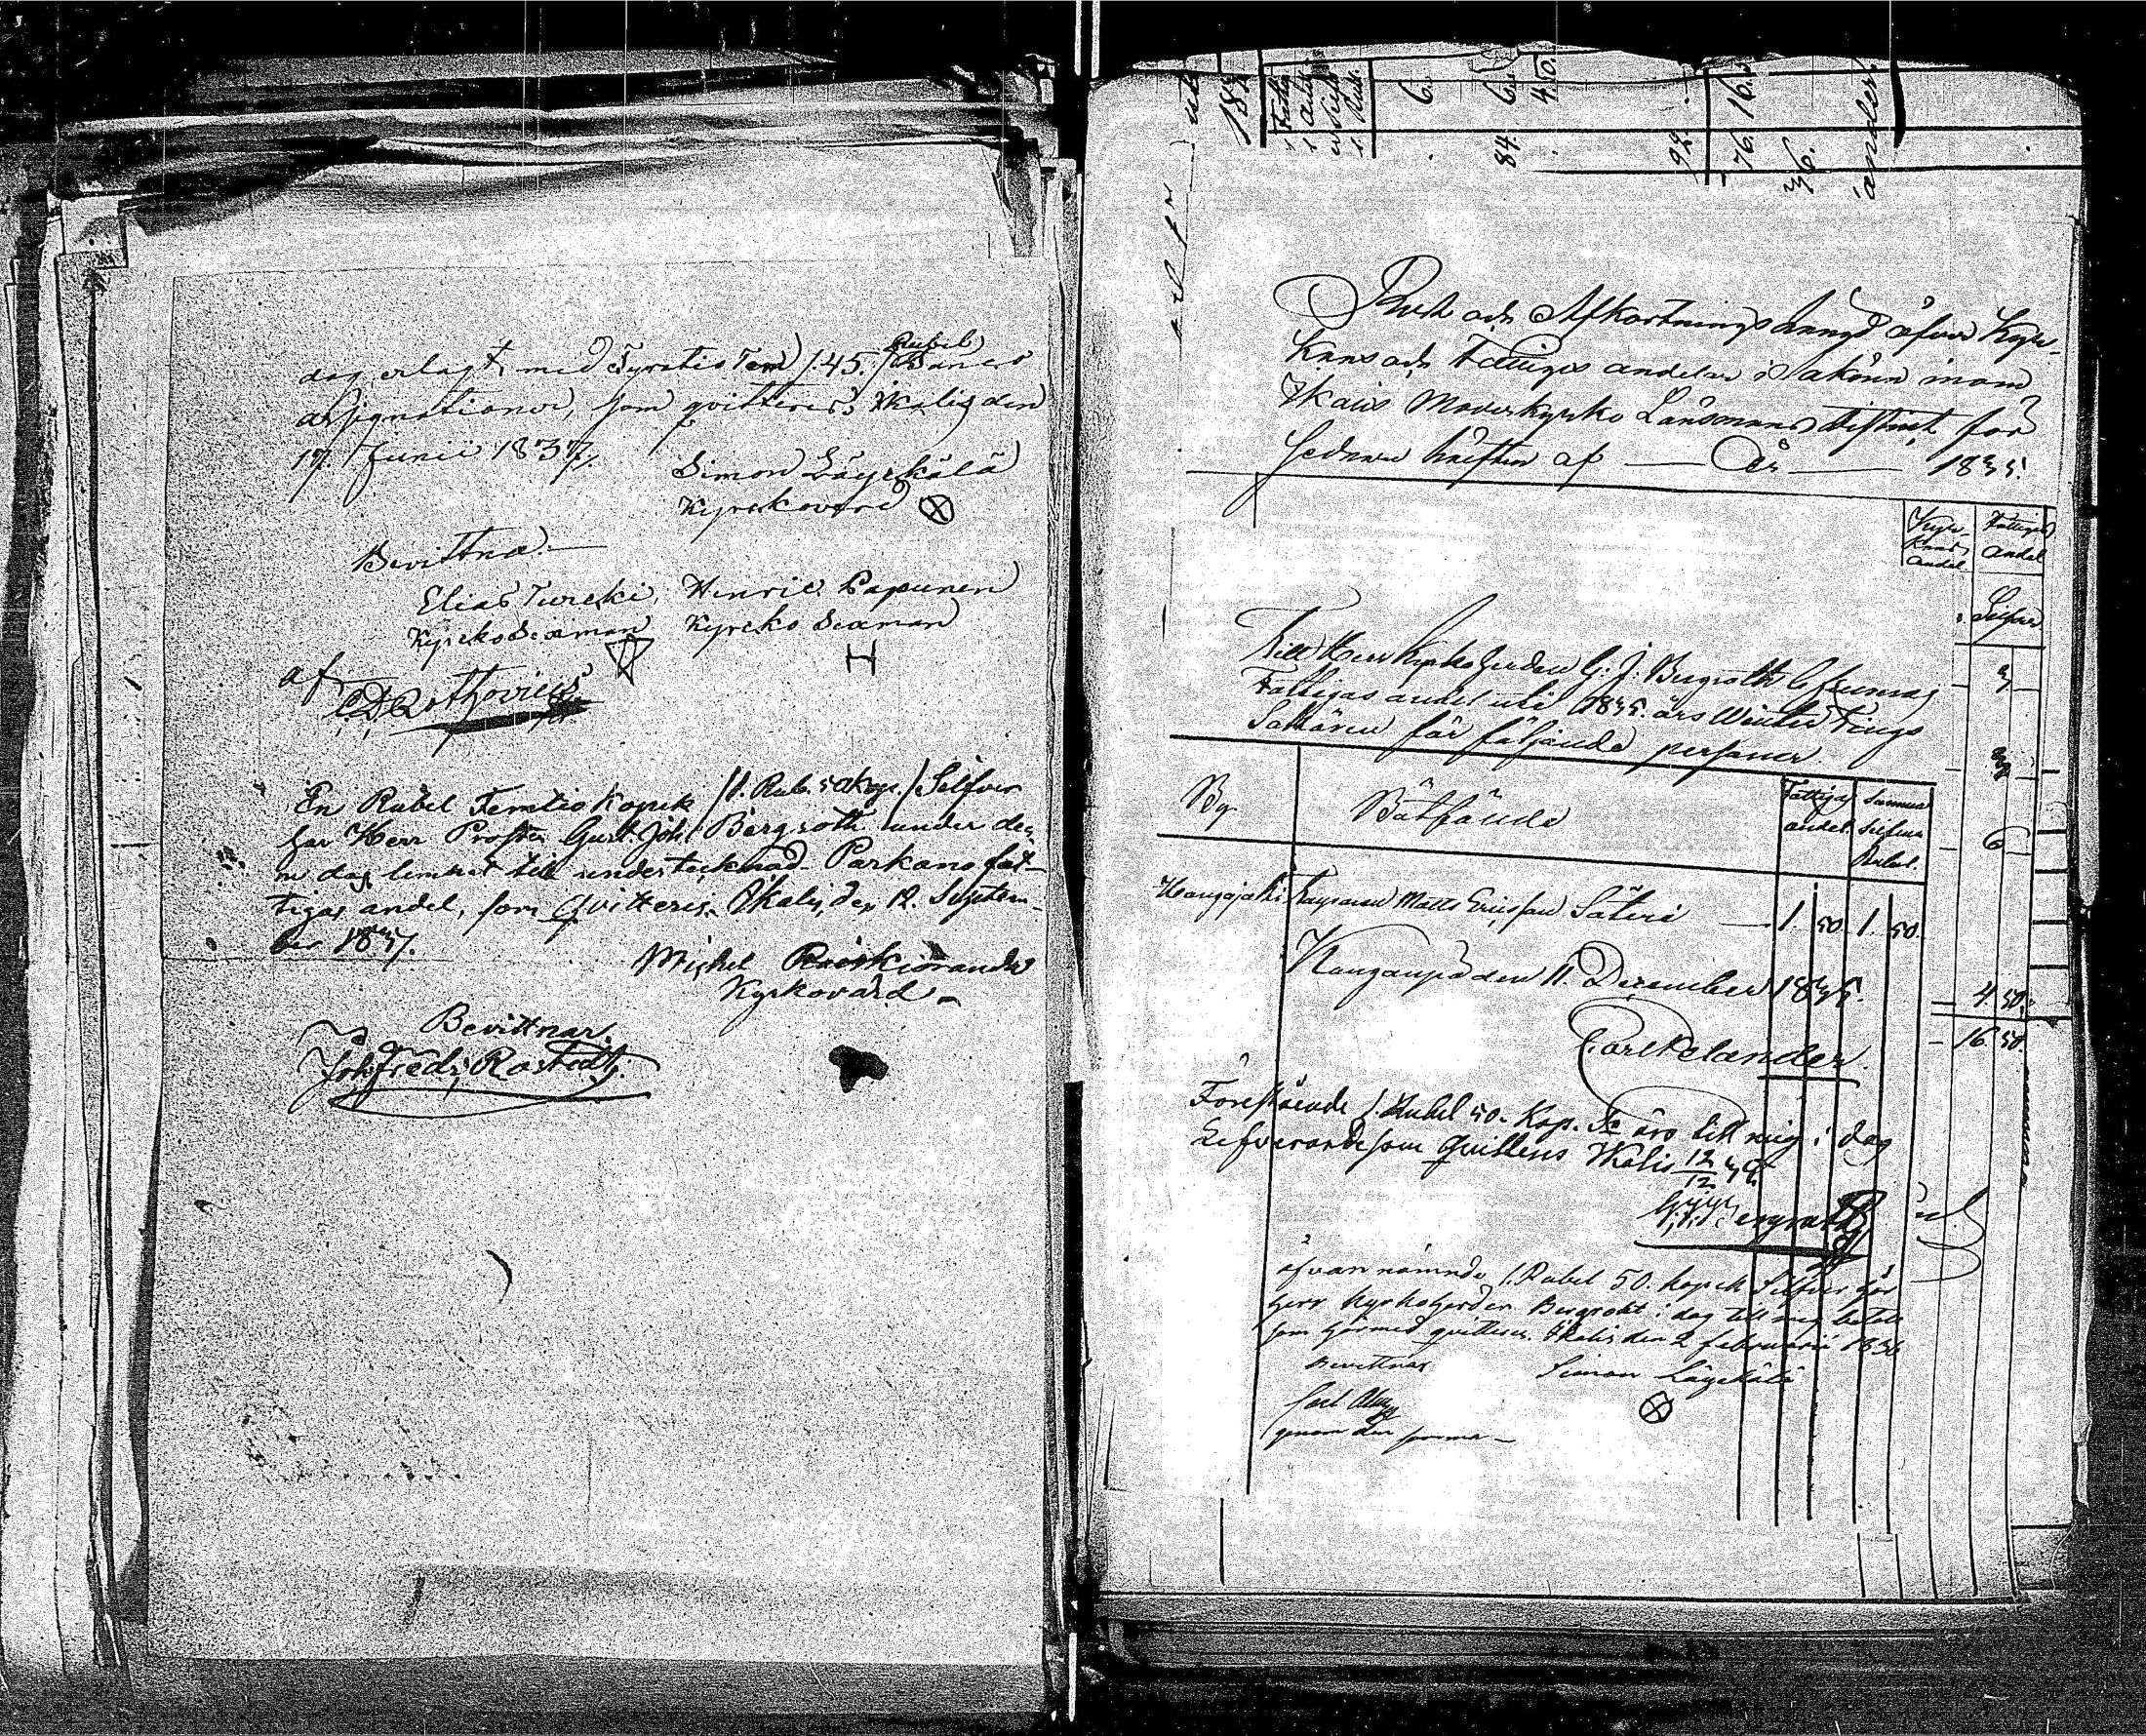 dag erlagt med Fyratio Fem /:45./ Rubel Banco
assignationer, som qvitteres. Ikalis den
17. Junii 1837.
Simon Läyekälä
Kyrckovärd
Bevittna
Elias Turcki, Henric Papunen
Kyrcko Sexman Kyrcko Sexman
af
En Rubel Femtio Kopek /1. Rub. 50 Kop./ Silfver
har Herr Prosten Gust. Joh. Bergroth under den-
na dag lemnat till undertecknad Parkano fat-
tigas andel, som Qvitteres. Ikalis den 12. Septem-
ber 1837.
Michel
Kyrkovärd
Bevittnar.
Joh. Fredr. Rostedt
6. 6. 16.
84. 40.
92. 76.
36.
Rest och Afkortnings Längd öfver Kyr-
kans och Fattigas andelar i Sakören inom
Ikalis Moderkyrko Länsmans District för
sednare hälften af — År — 1835.
Kyr-
kans
andel Fattigas
andel
Silfver
Till Herr Kyrkoherden G. J. Bergroth
Fattigas andel uti 1835 års Winter Tings
Saköres för följande personer.
By. Bötfände Fattigas
andel. Summa
Silfver
Rubel.
Matts Ericsson Säteri — 1. 50. 1. 50.
6
4. 50.
16. 50.
den 11. December 1835.
Carl Pelander.
Förestående 1. Rubel 50. Kop. Sr äro till mig i dag
Lefvererade som quitteras Ikalis 12/12 35
G. J. Bergroth
ofvan nämnde 1. Rubel 50. kopek Silfver har
herr Kyrkoherden Bergroth i dag till mig betalt
som härmed quitteras. Ikalis den 2 februarii 1836
Bevittnar Simon Läyekälä
Carl
genom den samma —